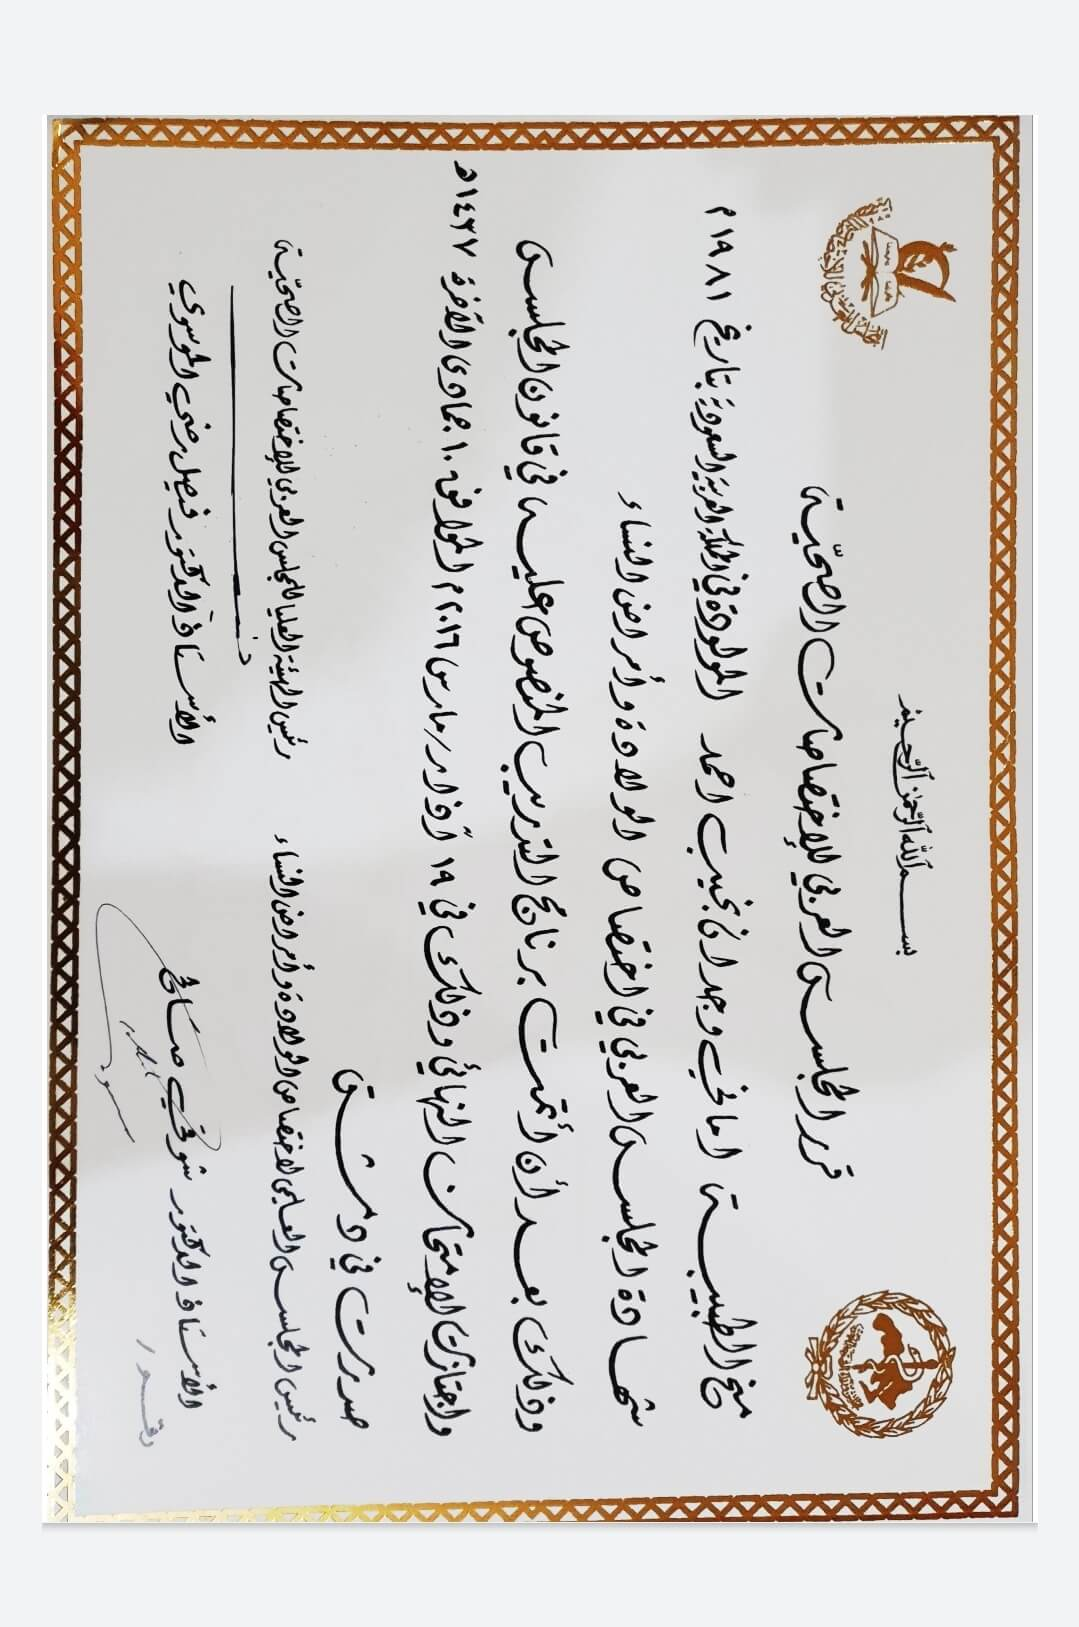 بسم الله الرحمن الرحيم
قرر المجلس العربي للإختصاصات الصحيّة
منح الطبيبة اماني وجداني نجيب احمد المولودة في المملكة العربية السعودية بتاريخ ١٩٨١م
شهادة المجلس العربي في اختصاص الولادة وأمراض النساء
وذلك بعد أن أتمت برنامج التدريب المنصوص عليه في قانون المجلس
واجتازت الإمتحان النهائي وذلك في ١٩ آذار/مارس ٢٠١٦م الموافق ١٠ جمادى الآخرة ١٤٣٧هـ
صدرت في دمشق
رئيس المجلس العلمي لاختصاص الولادة وأمراض النساء
رئيس الهيئة العليا للمجلس العربي للإختصاصات الصحيّة
الأستاذ الدكتور شوقي
الأستاذ الدكتور فيصل رضي الموسوي